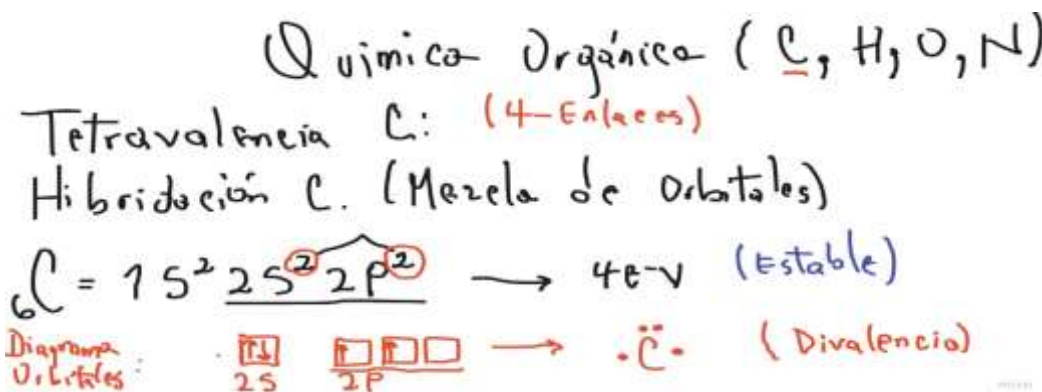 Química Orgánica (C, H, O, N)
Tetravalencia C: (4-Enlaces)
Hibridación C. (Mezcla de Orbitales)
₆C = 1S² 2S² 2P² → 4e-v (Estable)
Diagrama Orbitales: ↑↓ ↑ ↑ → ·C̈· (Divalencia)
2S 2P